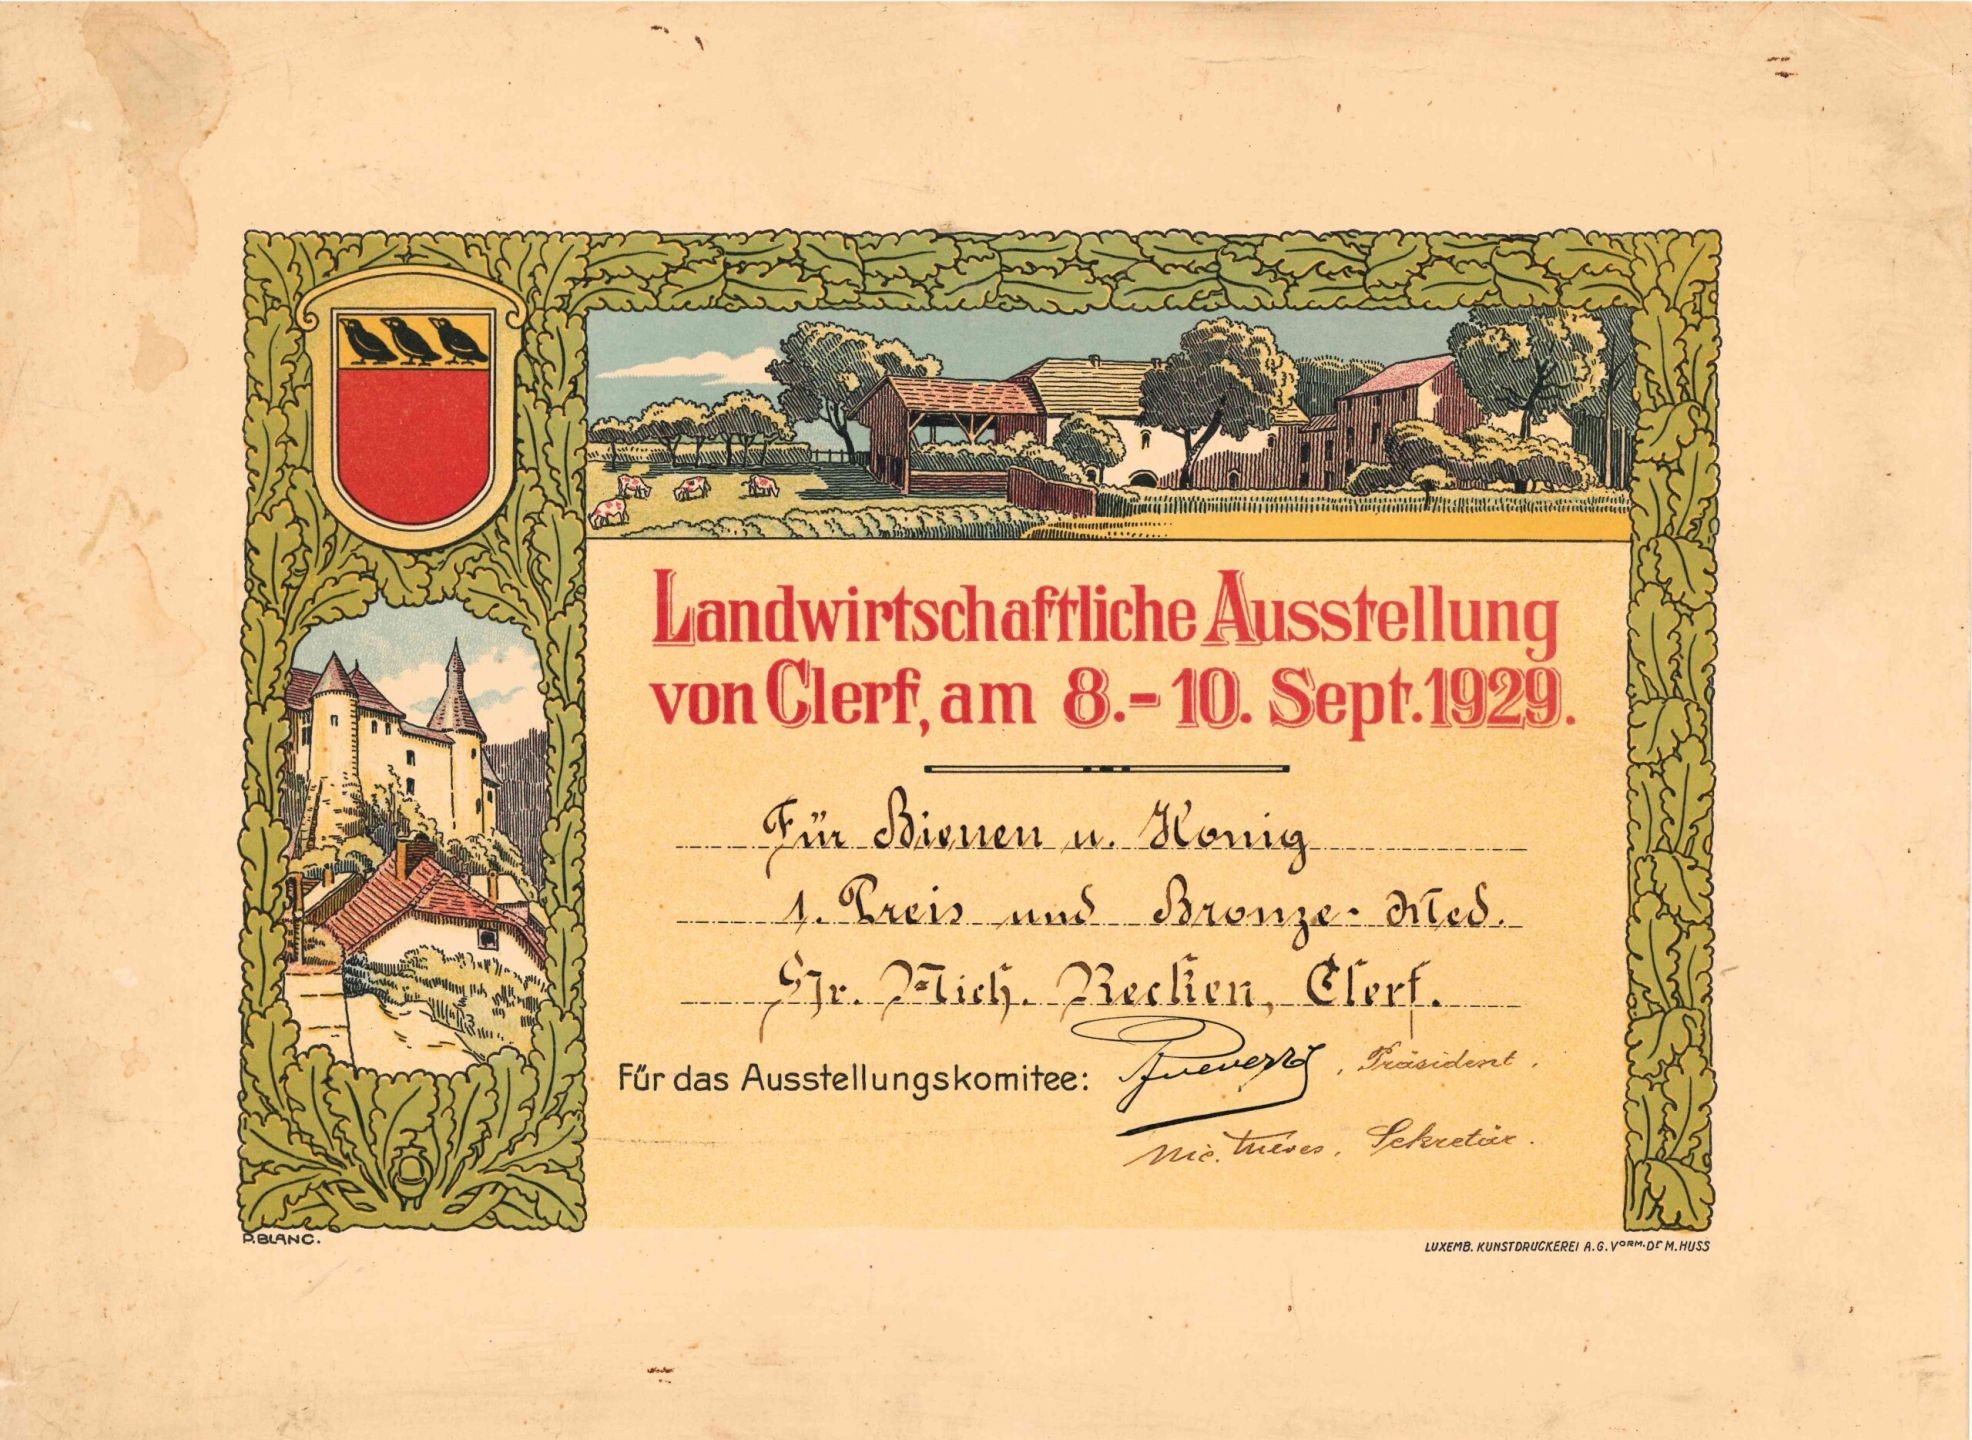 Landwirtschaftliche Ausstellung
von Clerf, am 8.-10. Sept. 1929.
Für Bienen u. Honig
1. Preis und Bronze-Med.
Hr. Mich. Recken, Clerf.
Für das Ausstellungskomitee: , Präsident.
Nic. , Sekretär.
P. BLANC.
LUXEMB. KUNSTDRUCKEREI A.G. VORM. Dr M. HUSS